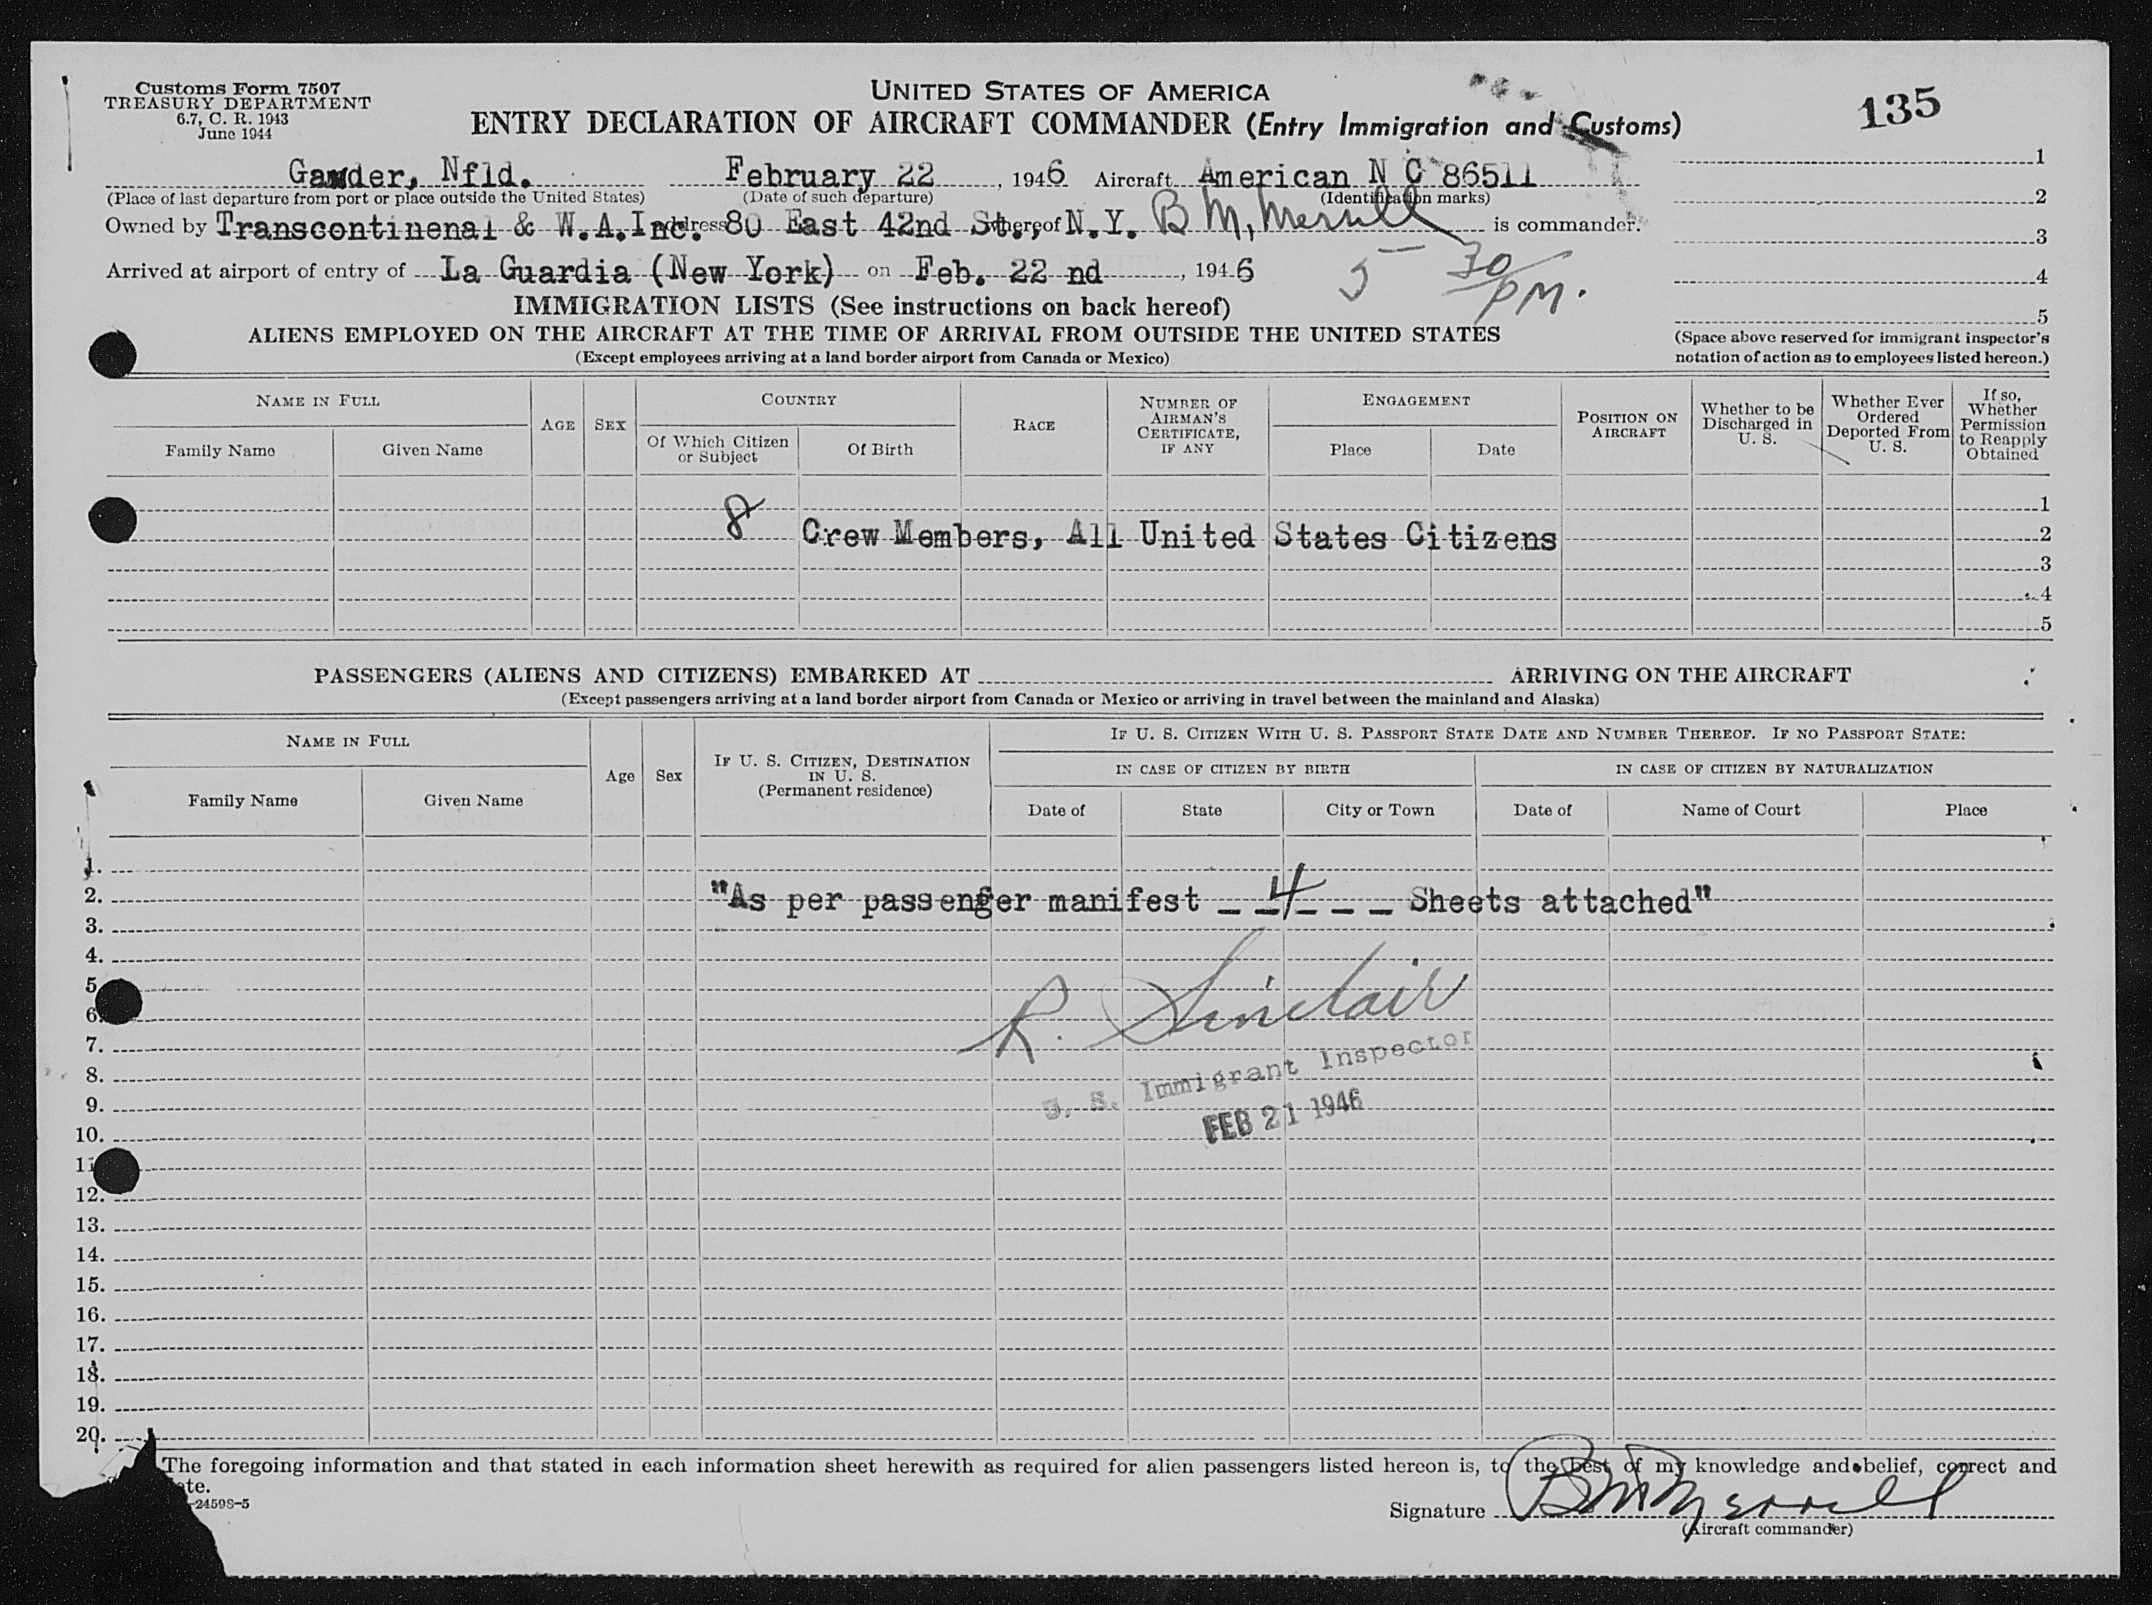 Customs Form 7507
TREASURY DEPARTMENT
6.7, C. R. 1943
June 1944
UNITED STATES OF AMERICA
ENTRY DECLARATION OF AIRCRAFT COMMANDER (Entry Immigration and Customs)
135
Gander, Nfld. February 22, 1946 Aircraft American N C 86511
(Place of last departure from port or place outside the United States) (Date of such departure) (Identification marks)
Owned by Transcontinenal & W.A.Inc. address 80 East 42nd St., thereof N.Y. B M, Merrill is commander.
Arrived at airport of entry of La Guardia (New York) on Feb. 22 nd, 1946 5 30/PM.
IMMIGRATION LISTS (See instructions on back hereof)
ALIENS EMPLOYED ON THE AIRCRAFT AT THE TIME OF ARRIVAL FROM OUTSIDE THE UNITED STATES
(Except employees arriving at a land border airport from Canada or Mexico)
1
2
3
4
5
(Space above reserved for immigrant inspector's
notation of action as to employees listed hereon.)
NAME IN FULL
Family Name Given Name
AGE SEX
COUNTRY
Of Which Citizen
or Subject
Of Birth
RACE
NUMBER OF
AIRMAN'S
CERTIFICATE,
IF ANY
ENGAGEMENT
Place Date
POSITION ON
AIRCRAFT
Whether to be
Discharged in
U. S.
Whether Ever
Ordered
Deported From
U. S.
If so,
Whether
Permission
to Reapply
Obtained
1
8 Crew Members, All United States Citizens 2
3
4
5
PASSENGERS (ALIENS AND CITIZENS) EMBARKED AT ARRIVING ON THE AIRCRAFT
(Except passengers arriving at a land border airport from Canada or Mexico or arriving in travel between the mainland and Alaska)
NAME IN FULL
Family Name Given Name
Age Sex
IF U. S. CITIZEN, DESTINATION
IN U. S.
(Permanent residence)
IF U. S. CITIZEN WITH U. S. PASSPORT STATE DATE AND NUMBER THEREOF. IF NO PASSPORT STATE:
IN CASE OF CITIZEN BY BIRTH IN CASE OF CITIZEN BY NATURALIZATION
Date of State City or Town Date of Name of Court Place
1.
2. "As per passenger manifest _ _ 4 _ _ _ Sheets attached"
3.
4.
5
6.
R. Sinclair
7.
8.
U. S. Immigrant Inspector
9.
FEB 21 1946
10.
11
12.
13.
14.
15.
16.
17.
18.
19.
20.
The foregoing information and that stated in each information sheet herewith as required for alien passengers listed hereon is, to the best of my knowledge and belief, correct and
ete.
-24598-5
Signature B M Merrill
(Aircraft commander)